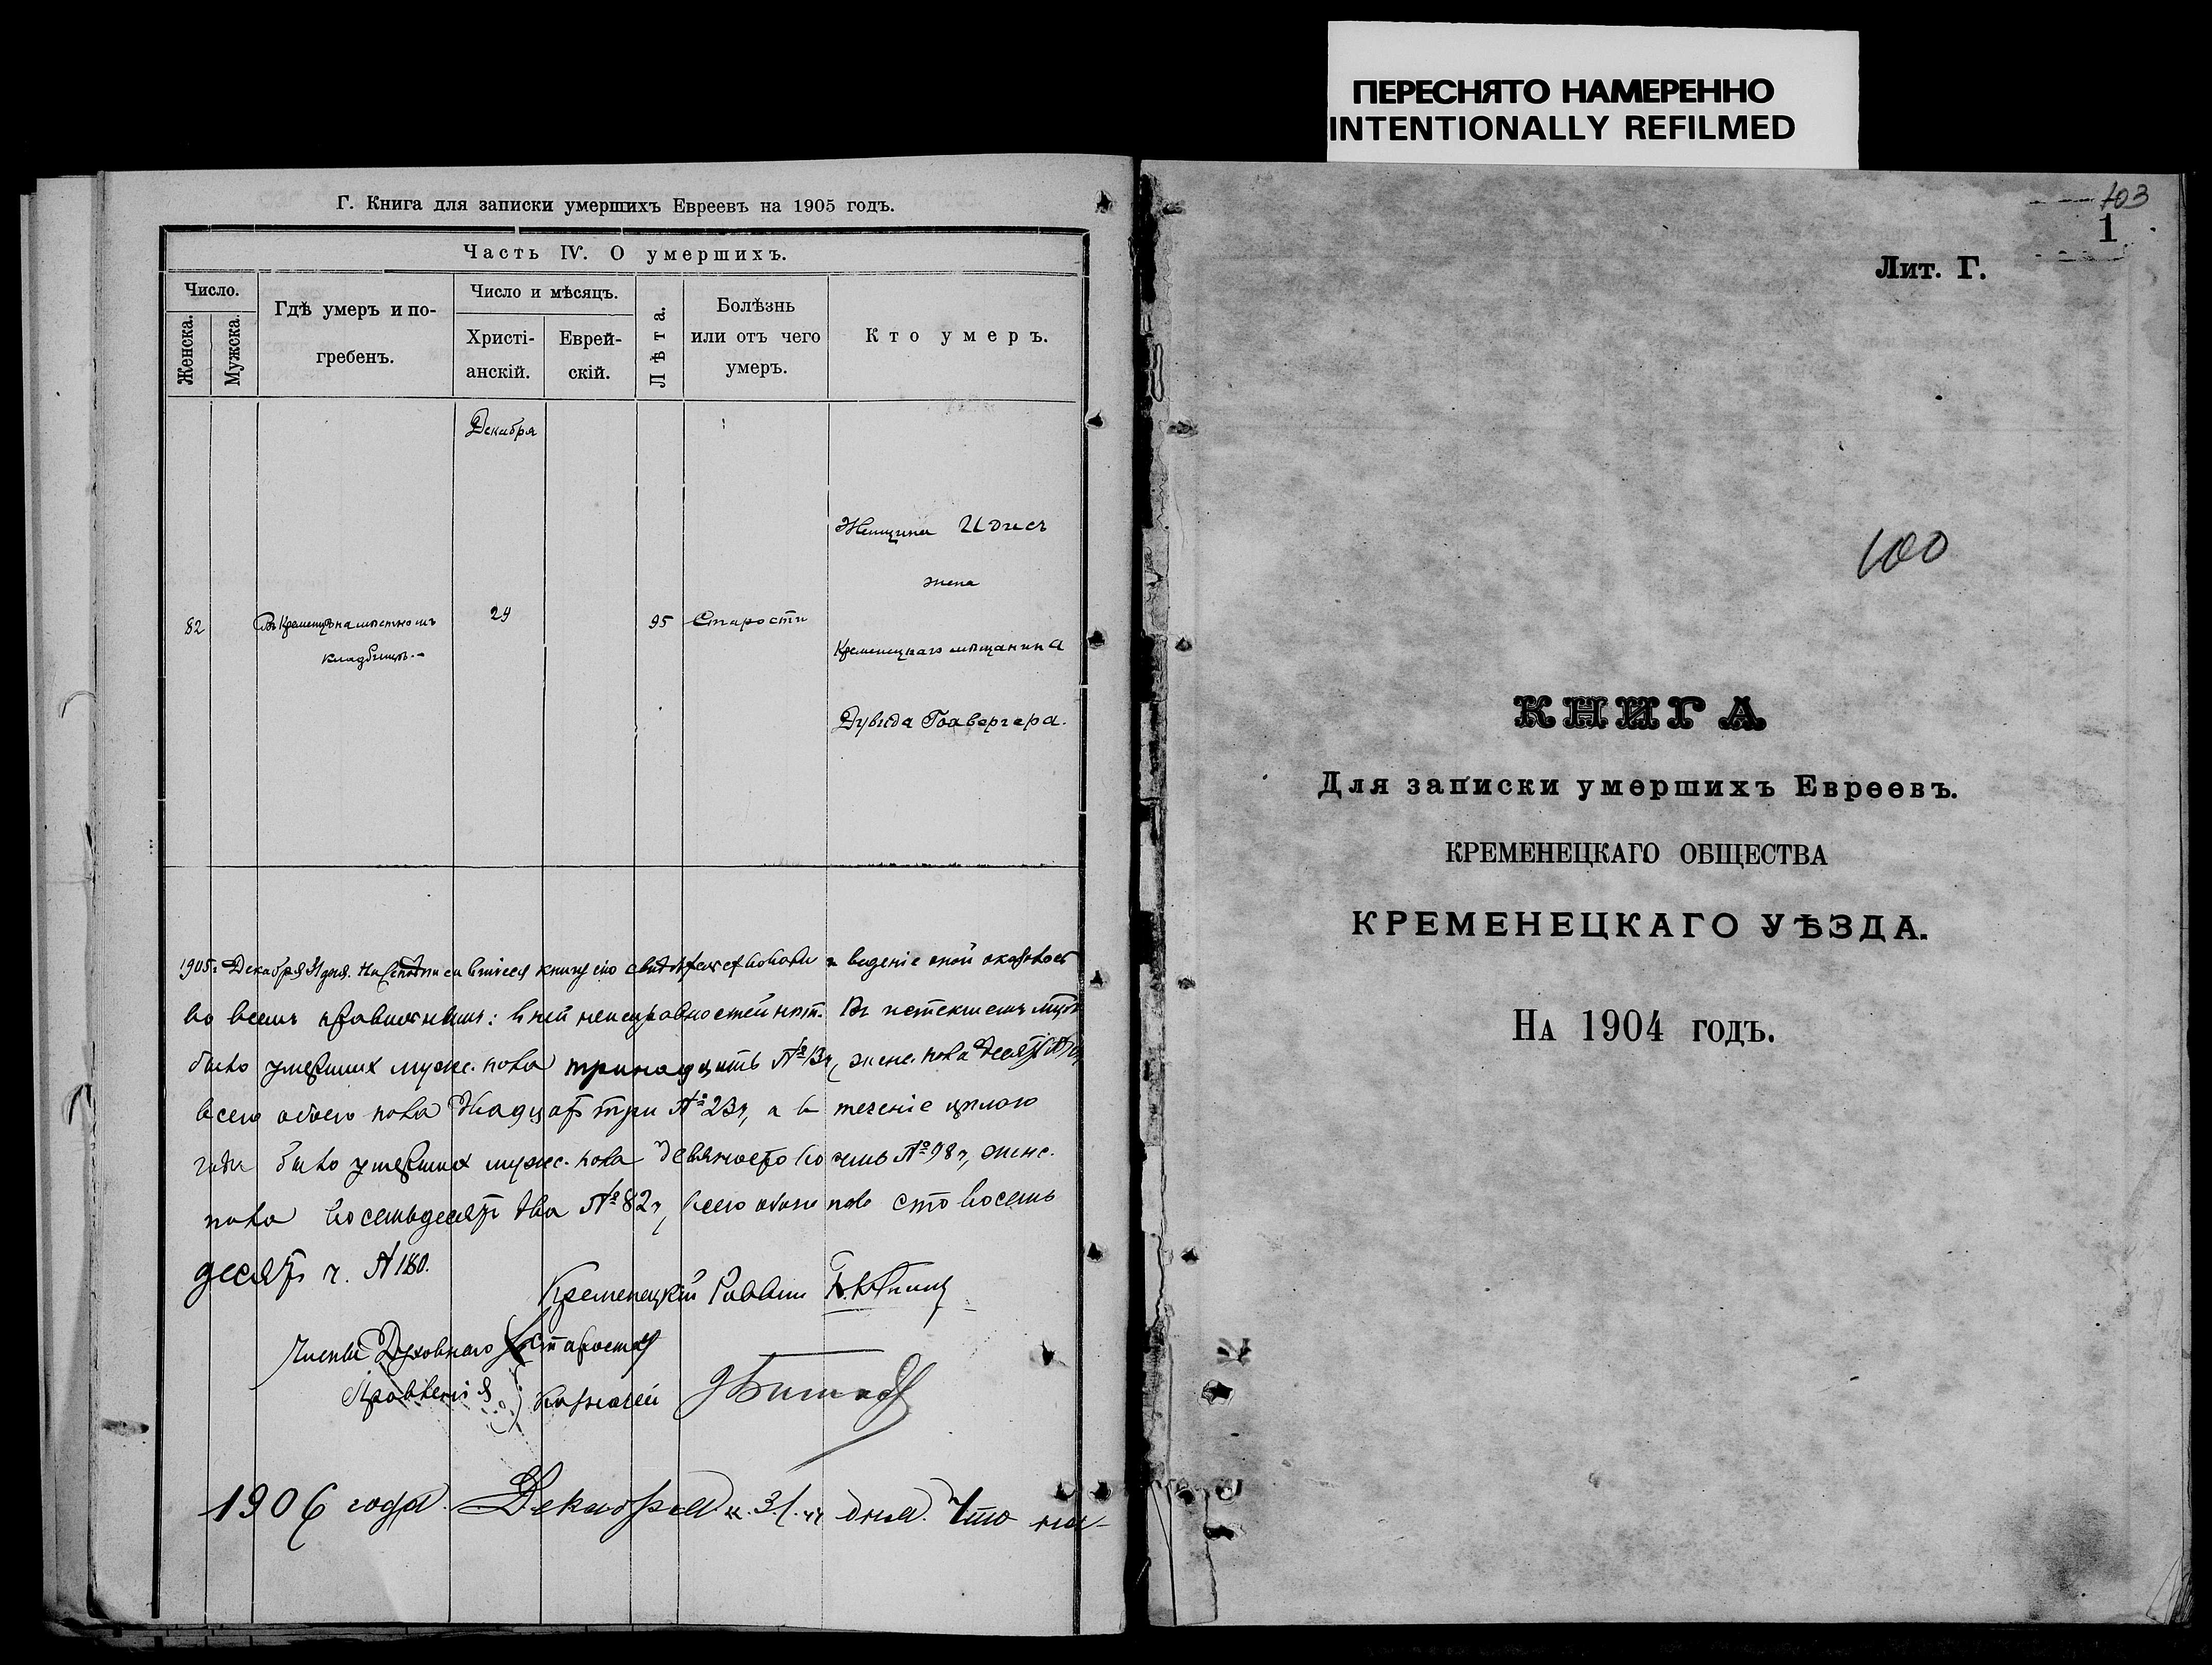 ПЕРЕСНЯТО НАМЕРЕННО
INTENTIONALLY REFILMED
Г. Книга для записки умершихъ Евреевъ на 1905 годъ.
Часть IV. О умершихъ.
Число.
Женска.
Мужска.
Гдѣ умеръ и по-
гребенъ.
Число и мѣсяцъ.
Христі-
анскій.
Еврей-
скій.
Лѣта.
Болѣзнь
или отъ чего
умеръ.
Кто умеръ.
Декабря
82
Въ Кременцѣ на мѣстномъ
кладбищѣ.-
29
95
Старости
Женщина Идись
жена
Кременецкаго мѣщанина
Дувида
1905г. Декабря 31 дня. книгу сію свидѣтельствовали и веденіе оной
во всемъ правильнымъ: в ней неисправностей нѣтъ. Въ истекшемъ
было умерших мужс. пола тринадцать № 13ч, женс. пола десять
всего обоего пола двадцать три № 23ч, а в теченіе цѣлого
года было умерших мужс. пола девяносто восемь № 98ч, женс.
пола восемьдесятъ два № 82ч, всего обоего пола сто восемь
десятъ ч. № 180.
Кременецкій Раввин
Члены Духовнаго Староста
Правленія Казначей
1906 года Декабря "31" дня. Что на-
103
1
Лит. Г.
100
КНИГА
Для записки умершихъ Евреевъ.
КРЕМЕНЕЦКАГО ОБЩЕСТВА
КРЕМЕНЕЦКАГО УѢЗДА.
На 1904 годъ.